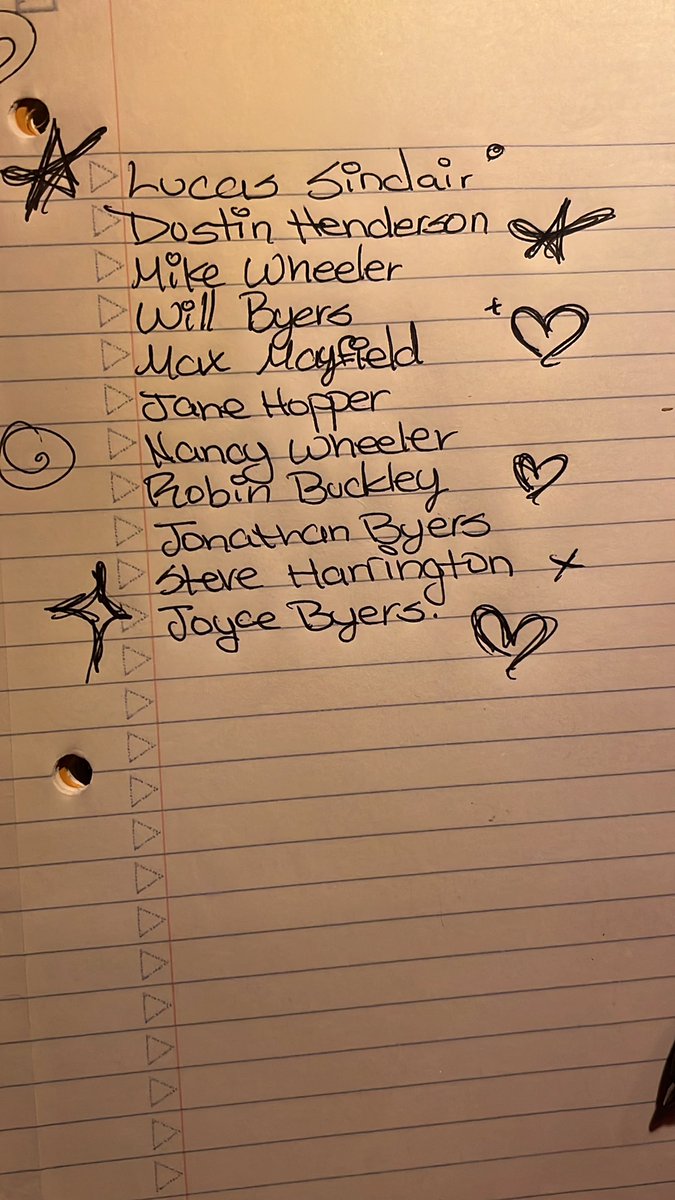 Lucas Sinclair
Dustin Henderson
Mike Wheeler
Will Byers
Max Mayfield
Jane Hopper
Nancy Wheeler
Robin Buckley
Jonathan Byers
Steve Harrington x
Joyce Byers.